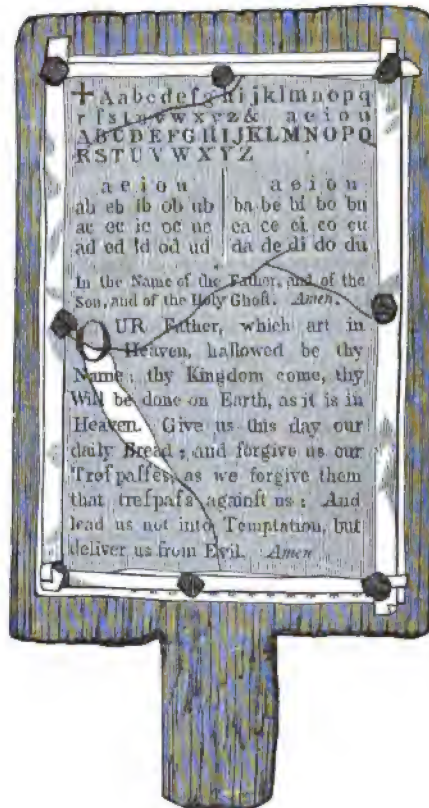 ✚ Aabcdefghijklmnopq
rſstuvwxyz& aeiou
ABCDEFGHIJKLMNOPQ
RSTUVWXYZ
a e i o u a e i o u
ab eb ib ob ub ba be bi bo bu
ac ec ic oc uc ca ce ci co cu
ad ed id od ud da de di do du
In the Name of the Father, and of the
Son, and of the Holy Ghoſt. Amen.
OUR Father, which art in
Heaven, hallowed be thy
Name; thy Kingdom come, thy
Will be done on Earth, as it is in
Heaven. Give us this day our
daily Bread; and forgive us our
Treſpaſſes, as we forgive them
that treſpaſs againſt us: And
lead us not into Temptation, but
deliver us from Evil. Amen